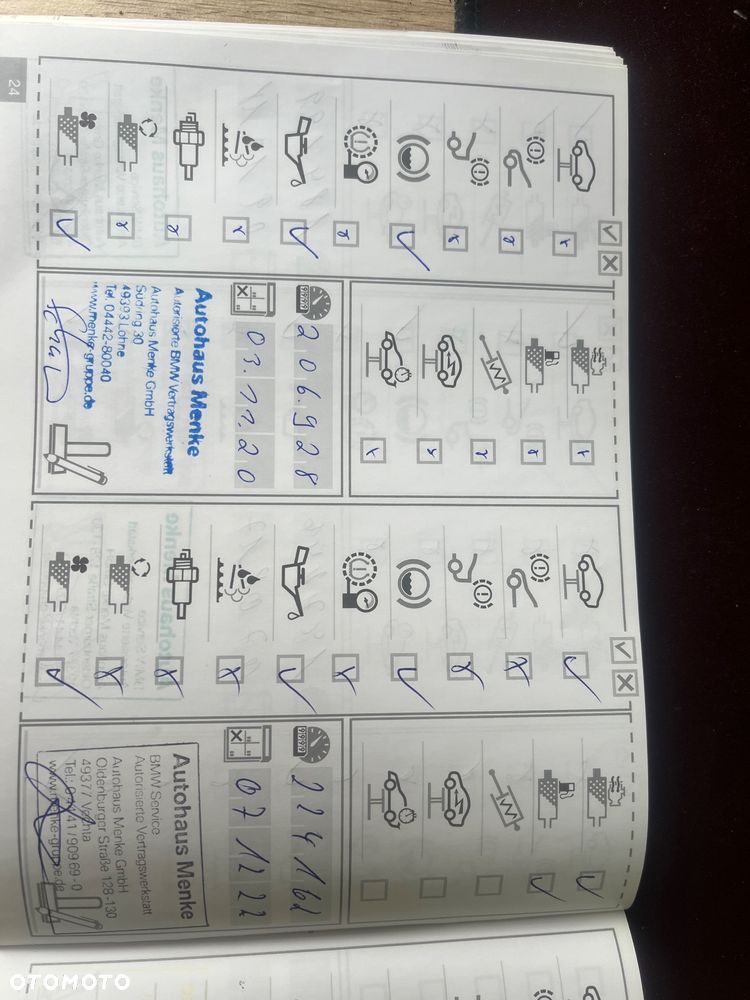 24
206.928
03.11.20
Autohaus Menke
Autorisierte BMW Vertragswerkstatt
Autohaus Menke GmbH
Südring 30
49393 Lohne
Tel. 04442-80040
www.menke-gruppe.de
224162
07 12 22
Autohaus Menke
BMW Service
Autorisierte Vertragswerkstatt
Autohaus Menke GmbH
Oldenburger Straße 128-130
49377 Vechta
Tel.: 04441/90969-0
www.menke-gruppe.de
OTOMOTO